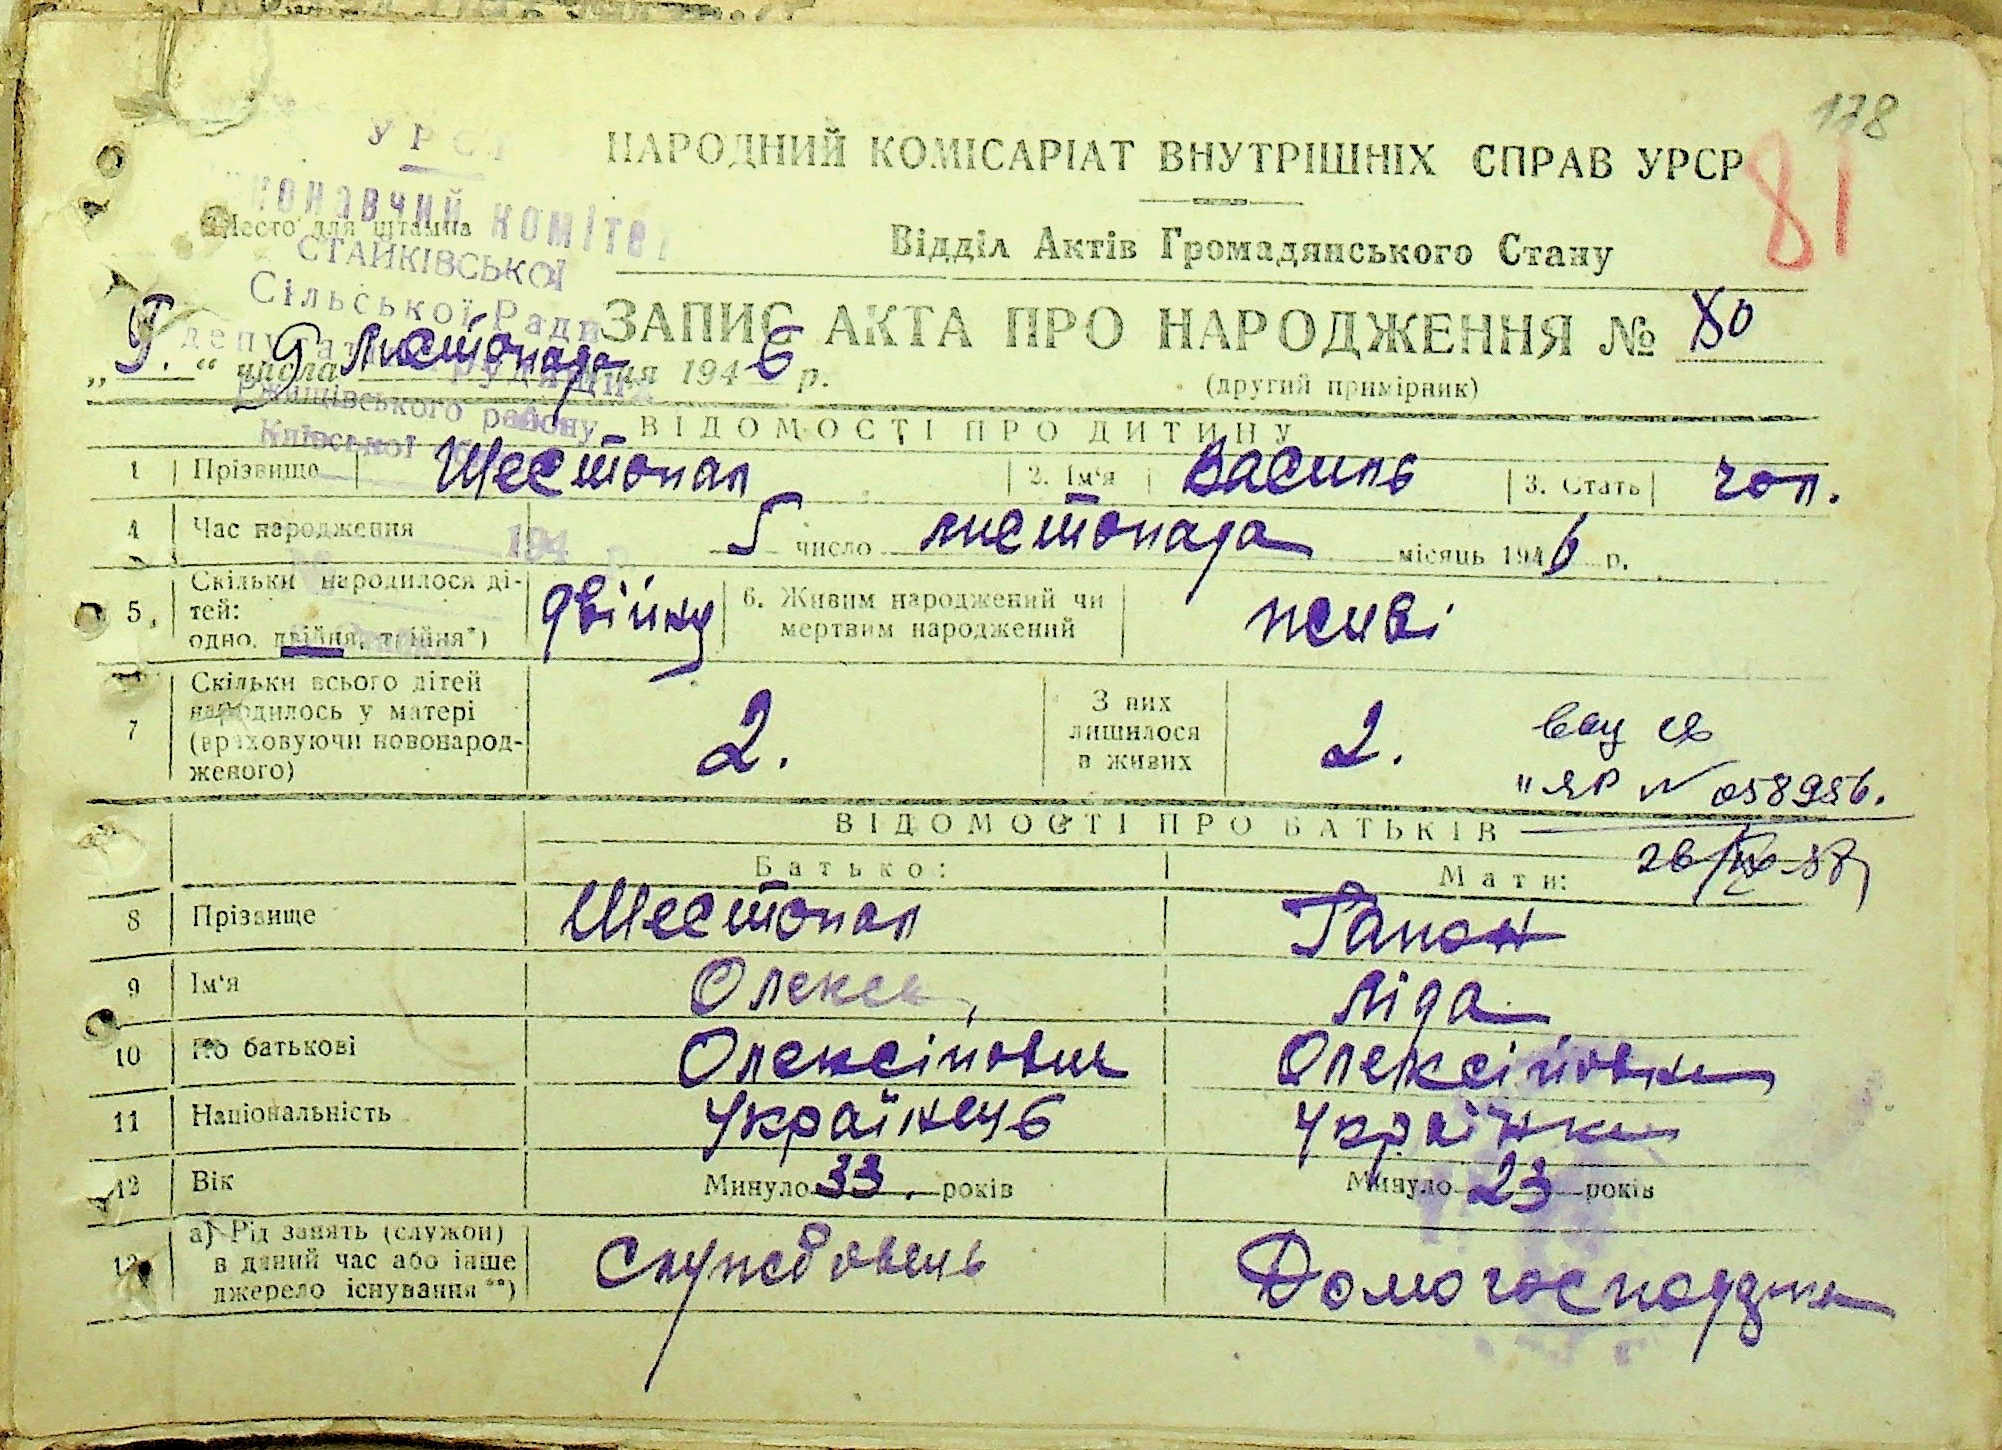 128
81
УРСР
НАРОДНИЙ КОМІСАРІАТ ВНУТРІШНІХ СПРАВ УРСР
Виконавчий комітет
Место для штампа
СТАЙКІВСЬКОЇ
Відділ Актів Громадянського Стану
Сільської Ради
ЗАПИС АКТА ПРО НАРОДЖЕННЯ № 80
депутатів трудящих
„9.“ числа 9 листопада ня 1946 р.
(другий примірник)
Ржищівського району
Київської
ВІДОМОСТІ ПРО ДИТИНУ
1 Прізвище Шестопал 2. Ім'я Василь 3. Стать чол.
4 Час народження 5 число листопада місяць 1946 р.
194 р.
5. Скільки народилося дітей:
одно, двійня, трійня*) двійку 6. Живим народжений чи
мертвим народжений живі
7 Скільки всього дітей
народилось у матері
(враховуючи новонарод-
женого) 2. З них
лишилося
в живих 2.
ЯР № 058956.
ВІДОМОСТІ ПРО БАТЬКІВ
Батько: Мати:
8 Прізвище Шестопал Гапон
9 Ім'я Олекса Ліда
10 По батькові Олексійович Олексіївна
11 Національність Українець Українка
12 Вік Минуло 33. років Минуло 23 років
13 а) Рід занять (служби)
в даний час або інше
джерело існування**) Службовець Домогосподарка